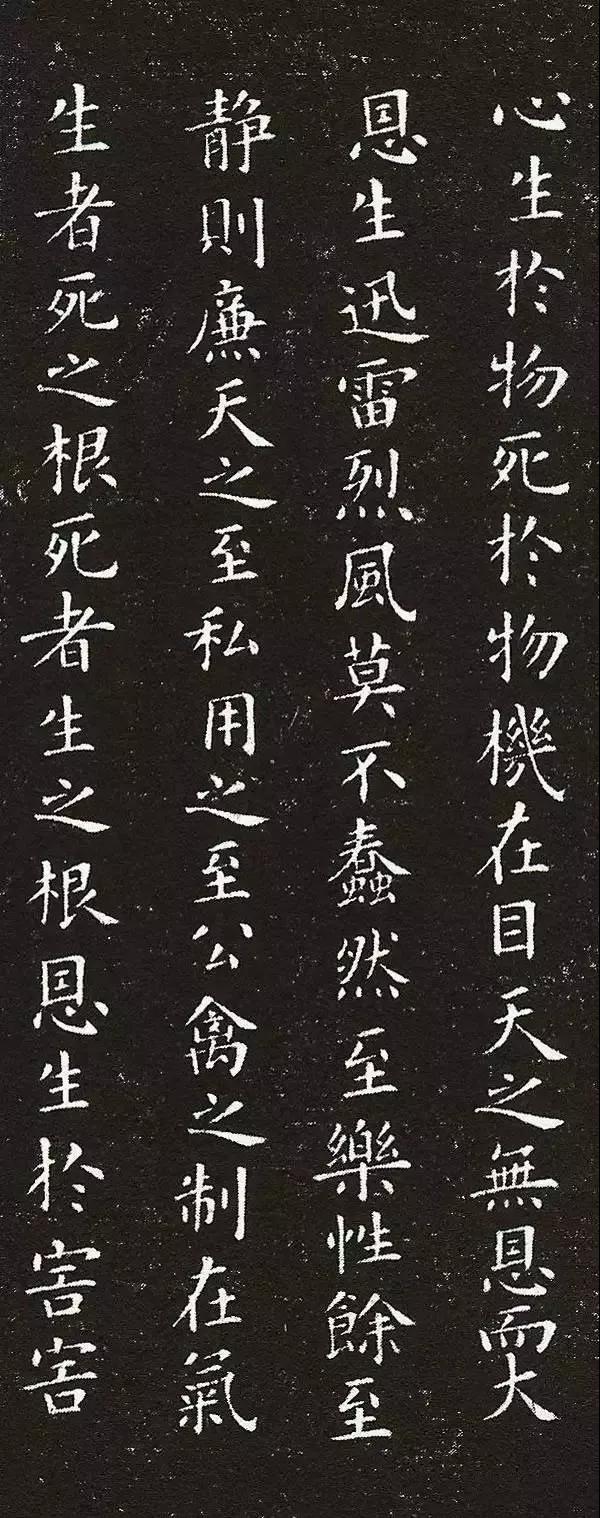 心生於物死於物機在目天之無恩而大
恩生迅雷烈風莫不蠢然至樂性餘至
静則廉天之至私用之至公禽之制在氣
生者死之根死者生之根恩生於害害